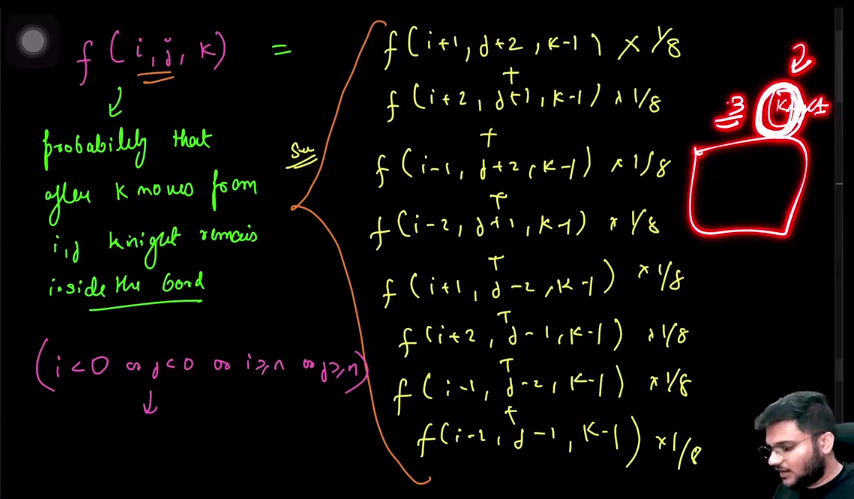 f(i,j,k) =
probability that
after k moves from
i,j knight remains
inside the bord
(i<0 or j<0 or i≥n or j≥n)
f(i+1, j+2, k-1) × 1/8
+
f(i+2, j+1, k-1) × 1/8
+
f(i-1, j+2, k-1) × 1/8
+
f(i-2, j+1, k-1) × 1/8
+
f(i+1, j-2, k-1) × 1/8
+
f(i+2, j-1, k-1) × 1/8
+
f(i-1, j-2, k-1) × 1/8
+
f(i-2, j-1, k-1) × 1/8